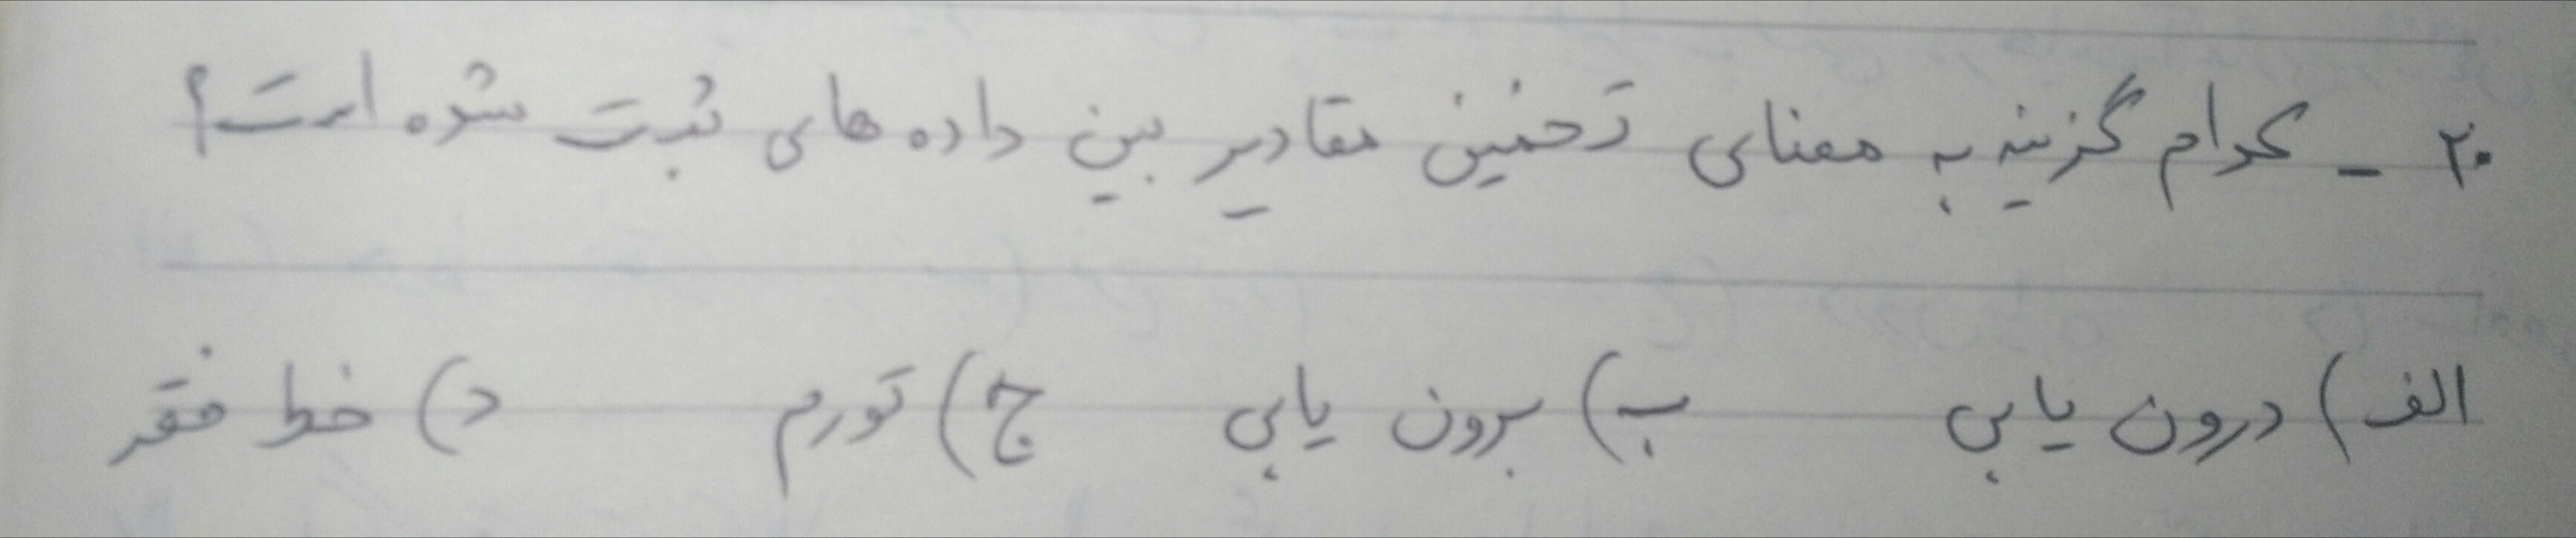 ۲۰ - کدام گزینه به معنای تخمین مقادیر بین داده های ثبت شده است؟
الف) درون یابی ب) برون یابی ج) تورم د) خط فقر